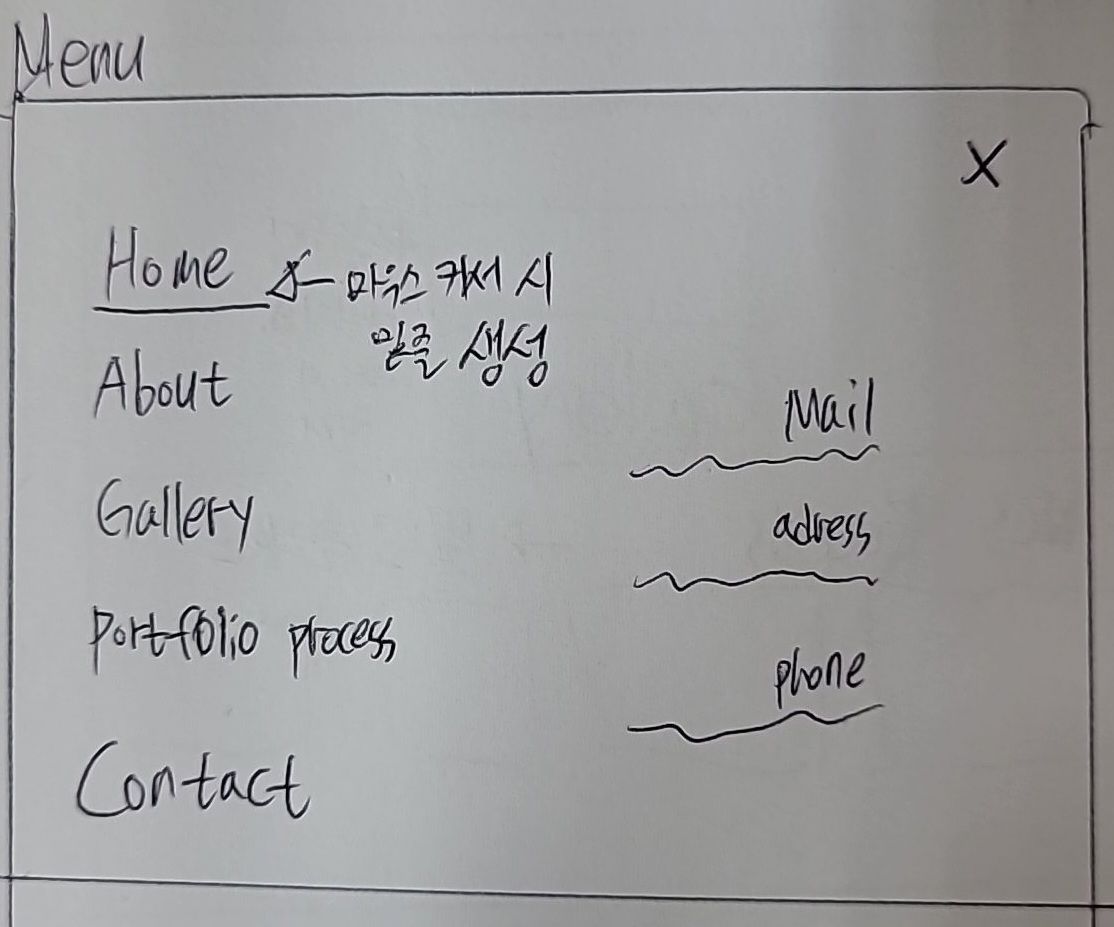 Menu
X
Home ← 마우스 커서 시
밑줄 생성
About
Gallery
Portfolio process
Contact
Mail
adress
phone